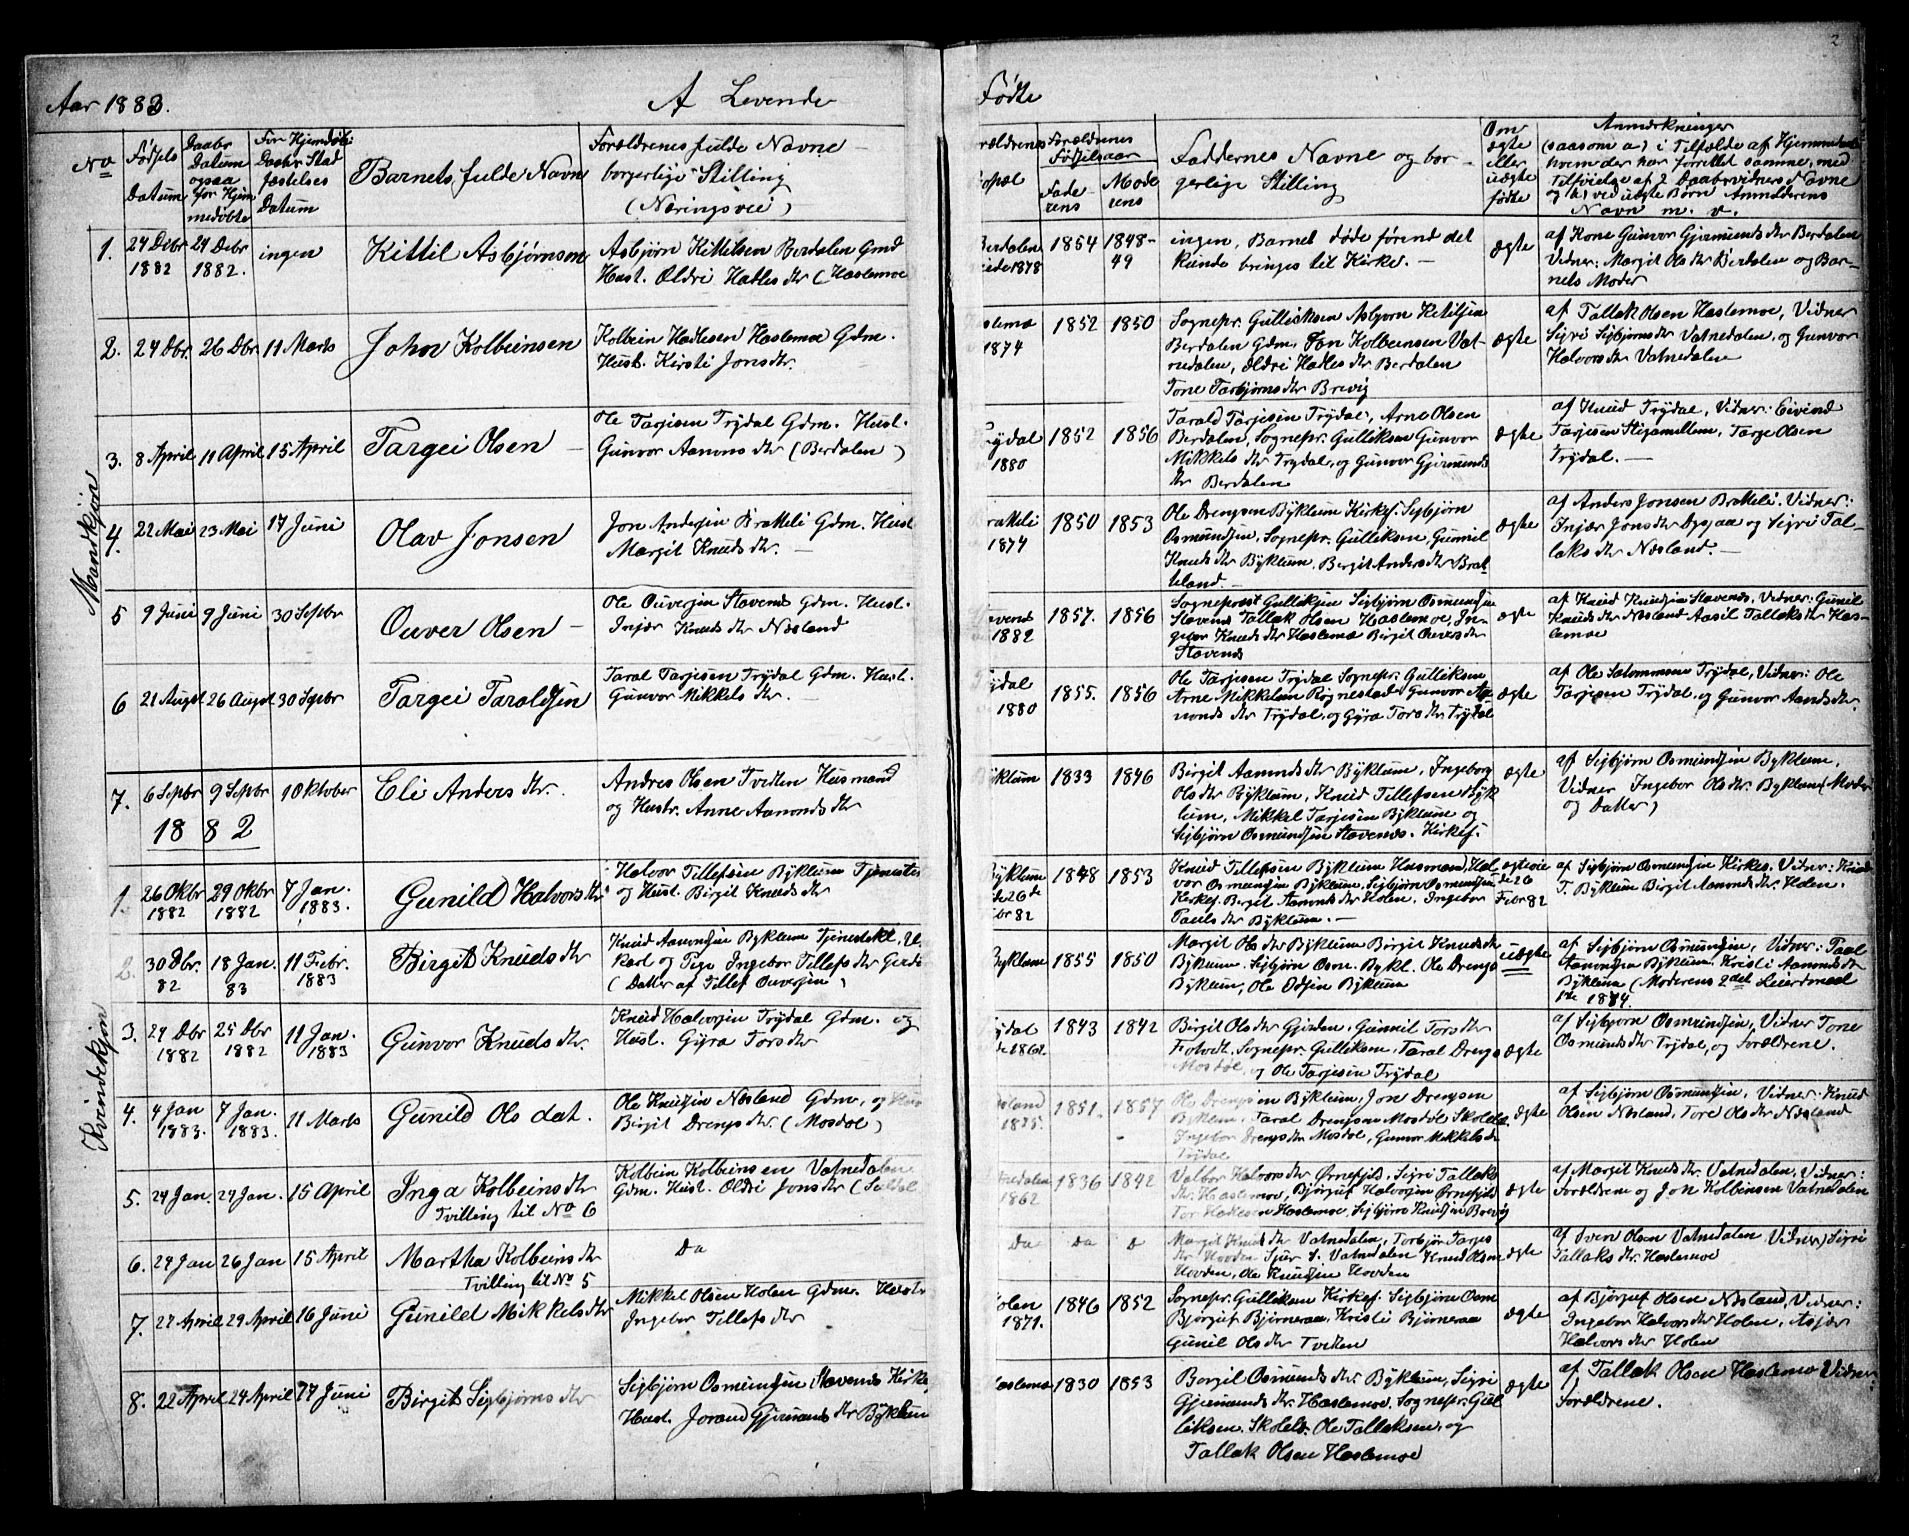 2
Aar 1883.
A Levende
Fødte
No
Fødsels
Datum
Daabs
Datum
ogsaa
for Hjem
medøbte
For Hjemdøbt
Daabs Stad
fæstelses
Datum
Barnets fulde Navn
Forældrenes fulde Navne
borgerlige Stilling
(Næringsvei)
Forældrenes
Fødselsaar
Fade
rens
Mode
rens
Faddernes Navne og bor-
gerlige Stilling
Om
ægte
eller
uægte
fødte
Anmærkninger
(saasom a) i Tilfælde af Hjemmedaab
hvem der har forrettet samme, med
Tilføielse af 2 Daabsvidners Navne
og b) ved uægte Børn Anmelderens
Navn m. v.
Mandkjøn
1. 24 Debr 1882
24 Debr 1882.
ingen
Kittil Asbjørnson
Asbjørn Kittilsen Berdalen Gmd
Hust. Oldri Hadles dtr (Haslemoe
Berdalen
1878
1854
1848-
49
ingen, Barnet døde førend det
kunde bringes til Kirke. —
ægte
af Kone Gunvor Gjermunds dtr Berdalen
Vidner: Margit Ols dtr Berdalen og Bar-
nets Moder
2. 24 Dbr.
26 Dbr
11 Marts
John Kolbeinsen
Kolbein Hadlesen Haslemoe Gdm.
Hust. Kirsti Jonsdtr.
1874
1852
1850
Sognepr. Gulliksen Asbjørn Ketilsen
Berdalen Gdm. Jon Kolbeinsen Vat-
nedalen, Oldri Hadles dtr Berdalen
Tone Torbjørns dtr Brevig
ægte
af Tallak Olsen Haslemoe, Vidner
Sigri Sigbjørns dtr Vatnedalen, og Gunvor
Halvors dtr Vatnedalen
3. 8 April
11 April
15 April
Targei Olsen
Ole Tarjesen Trydal Gdm. Hust.
Gunvor Aamunds dtr (Berdalen)
1880
1852
1856
Tarald Tarjesen Trydal, Arne Olsen
Berdalen, Sognepr. Gulliksen Gunvor
Mikkels dtr Trydal, og Gunvor Gjermunds
dtr Berdalen
ægte
af Knud Trydal, Vidner: Eivind
Tarjesen Stigamellem, Targe Olsen
Trydal. —
4. 22 Mai
23 Mai
17 Juni
Olav Jonsen
Jon Andersen Bratteli Gdm. Hust
Margit Knuds dtr. —
1874
1850
1853
Ole Drengsen Byklum Kirkes. Sigbjørn
Osmundsen, Sognepr. Gulliksen, Gunnil
Knuds dtr Byklum, Bergit Anders dtr Brat-
teland. —
ægte
af Anders Jonsen Bratteli. Vidner:
Injær Jons dtr og Sigri Tal-
laks dtr Næsland. —
5 9 Juni
9 Juni
30 Septbr
Ouver Olsen —
Ole Ouversen Stavenes Gdm. Hust.
Injær Knuds dtr Næsland
1882
1857.
1856
Sogneprest Gulliksen Sigbjørn Osmundsen
Stavenes Tallak Olsen Haslemoe, In-
gebor Knuds dtr Haslemoe Birgit Ouvers dtr
Stavenes
ægte
af Knud Knudsen Stavenes, Vidner: Gunil
Knuds dtr Næsland Aasil Tallaks dtr Has-
lemoe
6 21 August
26 August
30 Septbr
Targei Taraldsen
Taral Tarjesen Trydal Gdm. Hust.
Gunvor Mikkels dtr. —
1880
1855.
1856
Ole Tarjesen Trydal Sognepr. Gulliksen
Arne Mikkelsen Rygnestad Gunvor Aa-
monds dtr Trydal, og Gyra Tors dtr Trydal
ægte
af Ole Salommosen Trydal, Vidner: Ole
Tarjesen Trydal, og Gunvor Aamds dtr.
7. 6 Septbr
9 Septbr
1 Oktober
1882
Eli Anders dtr.
Andres Olsen Tveiten Husmand
og Hustr. Anne Aamonds dtr
Byklum
1833
1846
Birgit Aamnds dtr Byklum, Ingeborg
Ols dtr Byklum, Knud Tillefsen Byk
lum, Mikkel Tarjesen Byklum og
Sigbjørn Osmundsen Stavenes. Kirkes.
ægte
af Sigbjørn Osmundsen Byklum,
Vidner Ingebor Ols dtr. Byklum (Moder
og Datter)
Kvindekjøn
1. 26 Oktbr 1882
29 Oktbr 1882
7 Jan. 1883.
Gunild Halvors dtr
Halvor Tillefsen Byklum Tjeneste
og Hust. Birgit Knuds dtr
Byklum
1848
1853
Knud Tillefsen Byklum Husmand, Hal
vor Osmundsen Byklum, Sigbjørn Osmundsen
Kirkes. Bergit Aamnds dtr Holen, Ingebor
Pauls dtr Byklum. —
26
Febr 82
af Sigbjørn Osmundsen Kirkes. Vidner: Knud
T. Byklum Birgit Aamonds dtr. Holen.
2. 30 Dbr. 82
18 Jan. 83
11 Febr. 1883
Birgit Knuds dtr
Knud Aamundsen Byklum Tjenestekl. U
karl og Pige Ingebor Tillefs dtr
(Datter af Tillef Ouversen)
Byklum
1855
1850
Margit Ols dtr Byklum Birgit Knuds dtr
Byklum. Sigbjørn Osm. Bykl. Ole Drengs
Byklum, Ole Odsen Byklum
uægte
af Sigbjørn Osmundsen, Vidner: Paal
Aamundsen Byklum, Kristi Aamonds dtr
Byklum (Moderens 2det Leiermaal
1ste 1874.
3. 24 Dbr 1882
25 Dbr 1882
11 Jan. 1883
Gunvor Knuds dtr.
Knud Halvorsen Trydal Gdm. og
Hust. Gyra Tors dtr
1862
1843
1842
Birgit Ols dtr Gjerden, Gunnil Tors dtr
Sognepr. Gulliksen, Taral Drengs
Mosdøl, og Ole Tarjesen Trydal
ægte
af Sigbjørn Osmundsen, Vidner Tone
Osmunds dtr Trydal, og Forældrene.
4. 4 Jan 1883.
7 Jan. 1883.
11 Marts
Gunild Ols dat.
Ole Knudsen Næsland Gdm, og Hust
Birgit Drengs dtr. (Mosdøl)
1875.
1851.
1857
Ole Drengsen Byklum, Jon Drengsen
Byklum. Taral Drengsen Mosdøl Skolel.
Ingebor Drengs dtr Mosdøl, Gunvor Mikkels dr
Trydal
ægte
af Sigbjørn Osmundsen, Vidner: Knud
Olsen Næsland, Tore Ols dtr Næsland
5. 24 Jan.
24 Jan.
15 April
Inga Kolbeins dtr
Tvilling til No 6
Kolbein Kolbeinsen Vatnedalen
Gdm. Hust. Oldri Jons dtr (Suldal
1862
1836
1842
Valbor Halvors dtr. Ørnefjeld, Sigri Tallaks
dtr. Haslemoe, Bjørguf Halvorsen Ørnefjeld
Tor Hakesen Haslemoe, Sigbjørn Knudsen Brevig
ægte
af Margit Knuds dtr. Vatnedalen, Vidner:
Forældrene og Jon Kolbeinsen Vatnedalen
6. 24 Jan
26 Jan
15 April
Martha Kolbeins dtr
Tvilling til No 5
Do
Do
Do
D
Margit Knuds dtr Vatnedalen, Torbjør Tarjes
dtr Hovden Sjur S. Vatnedalen Knud Olsen
Hovden, Ole Knudsen Hovden
ægte
af Sven Olsen Vatnedalen Vidner) Sigri
Tallaks dtr. Haslemoe
7. 27 April
29 April
16 Juni
Gunild Mikkels dtr
Mikkel Olsen Holen Gdm. Hust
Ingebor Tillefs dtr
Holen
1871.
1846
1852
Sognepr. Gulliksen Kirkes. Sigbjørn Osm
Bjørguf Bjørneraa, Kristi Bjørneraa
Gunil Ols dtr Tveiten
ægte
af Bjørguf Olsen Næsland, Vidner:
Ingebor Halvors dtr Holen, Asjær
Halvors dtr Holen
8. 22 April
24 April
17 Juni
Birgit Sigbjørns dtr
Sigbjørn Osmundsen (Stavenes Kirkes
Hust. Joran Gjermunds dtr Byklum
Haslemo
1830
1853
Borgil Osmunds dtr Byklum, Sigri
Gjermunds dtr. Haslemoe, Sognepr. Gul
liksen. Skolels. Ole Tallaksen, og
Tallak Olsen Haslemoe
ægte
af Tallak Olsen Haslemo Vidner:
Forældrene.